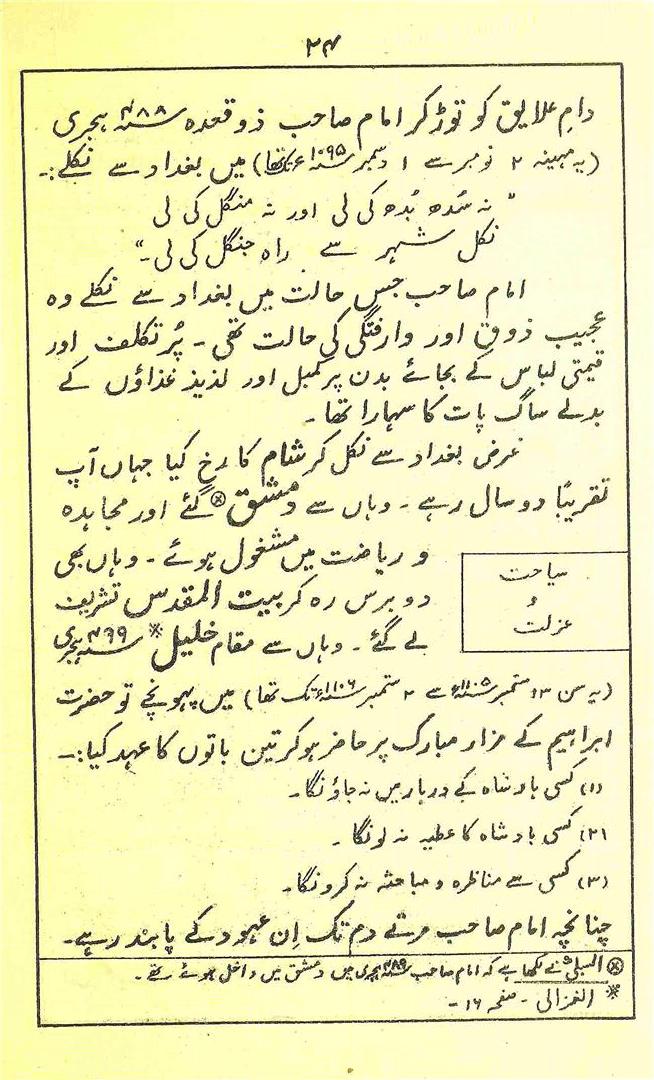 ۲۴
دامِ علایق کو توڑ کر امام صاحب ذوقعدہ ۴۸۸؁ ہجری
(یہ مہینہ ۲ نومبر سے ۱ دسمبر ۱۰۹۵؁ء تک تھا) میں بغداد سے نکلے:۔
" نہ سُدھ بُدھ کی لی اور نہ منگل کی لی
نکل شہر سے راہ جنگل کی لی۔"
امام صاحب جس حالت میں بغداد سے نکلے وہ
عجیب ذوق اور وارفتگی کی حالت تھی۔ پُر تکلف اور
قیمتی لباس کے بجائے بدن پر کمبل اور لذیذ غذاؤں کے
بدلے ساگ پات کا سہارا تھا۔
غرض بغداد سے نکل کر شام کا رخ کیا جہاں آپ
تقریباً دو سال رہے۔ وہاں سے دمشق⊗ گئے اور مجاہدہ
و ریاضت میں مشغول ہوئے۔ وہاں بھی
دو برس رہ کر بیت المقدس تشریف
لے گئے۔ وہاں سے مقام خلیل※ ۴۹۹؁ ہجری
سیاحت
و
عزلت
(یہ سن ۱۳ ستمبر ۱۱۰۵؁ء سے ۲ ستمبر ۱۱۰۶؁ء تک تھا) میں پہونچے تو حضرت
ابراہیم کے مزار مبارک پر حاضر ہو کر تین باتوں کا عہد کیا:۔
(۱) کسی بادشاہ کے دربار میں نہ جاؤنگا۔
(۲) کسی بادشاہ کا عطیہ نہ لونگا۔
(۳) کسی سے مناظرہ و مباحثہ نہ کرونگا۔
چنانچہ امام صاحب مرتے دم تک اِن عہود کے پابند رہے۔
⊗ السبکیؒ نے لکھا ہے کہ امام صاحب ۴۸۹؁ ہجری میں دمشق میں داخل ہوئے تھے۔
※ الغزالی۔ صفحہ ۱۶۔